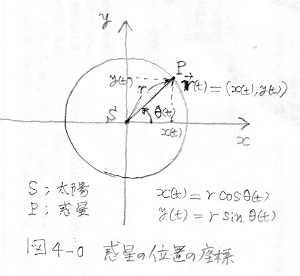 y
P
y(t)
r
r⃗(t)=(x(t),y(t))
θ(t)
S
x(t)
x
S；太陽
P；惑星
x(t)=r cosθ(t)
y(t)=r sinθ(t)
図4-0 惑星の位置の座標